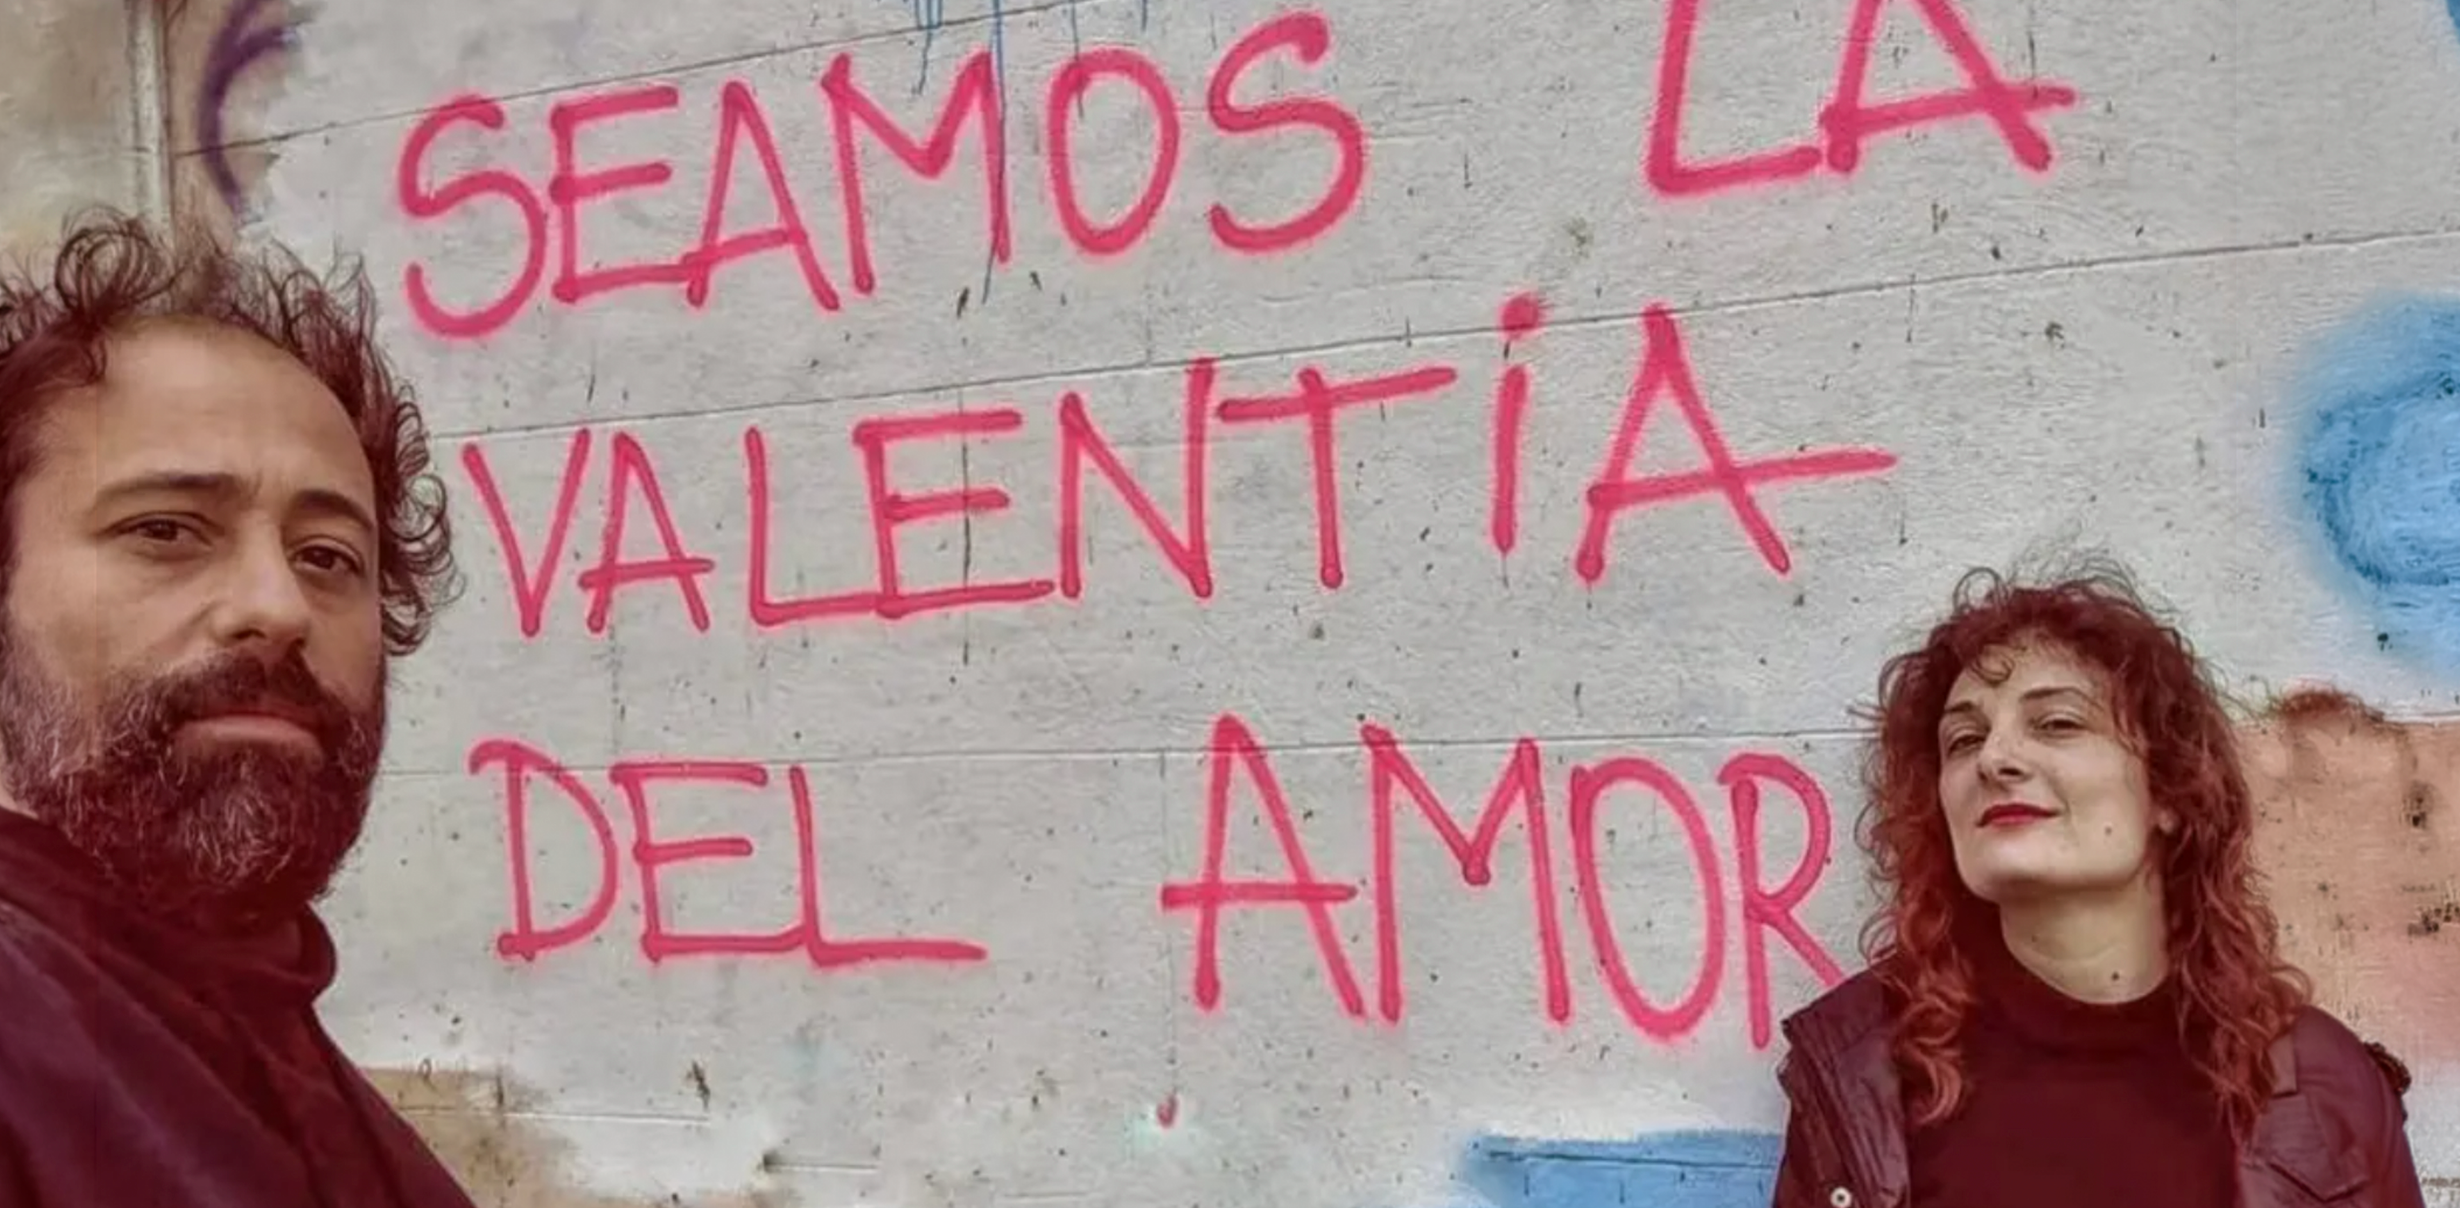 SEAMOS LA
VALENTiA
DEL AMOR